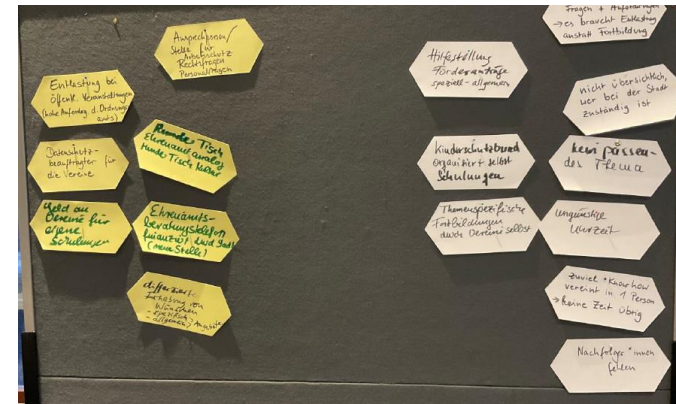 Ansprechperson/
Stelle für
Rechtsfragen
Personalfragen
Entlastung bei
öffentl. Veranstaltungen
(hohe Anforderg d. Ordnungs-
amts)
Datenschutz-
beauftragter für
die Vereine
Runder Tisch
Ehrenamt analog
runder Tisch Kultur
Geld an
Vereine für
eigene
Schulungen
Ehrenamts-
beratungstelefon
finanziert durch Stadt
(neue Stelle)
differenzierte
Erhebung von
Wünschen
- spezifisch
- allgemein
Hilfestellung
Förderanträge
speziell - allgemein
Kinderschutzbund
organisiert selbst
Schulungen
Themenspezifische
Fortbildungen
durch Vereine selbst
Fragen + Anforderungen
→ es braucht Entlastung
anstatt Fortbildung
nicht übersichtlich,
wer bei der Stadt
zuständig ist
kein passen-
des Thema
ungünstige
Uhrzeit
zuviel "Knowhow
vereint in 1 Person
→ keine Zeit übrig
Nachfolger*innen
fehlen